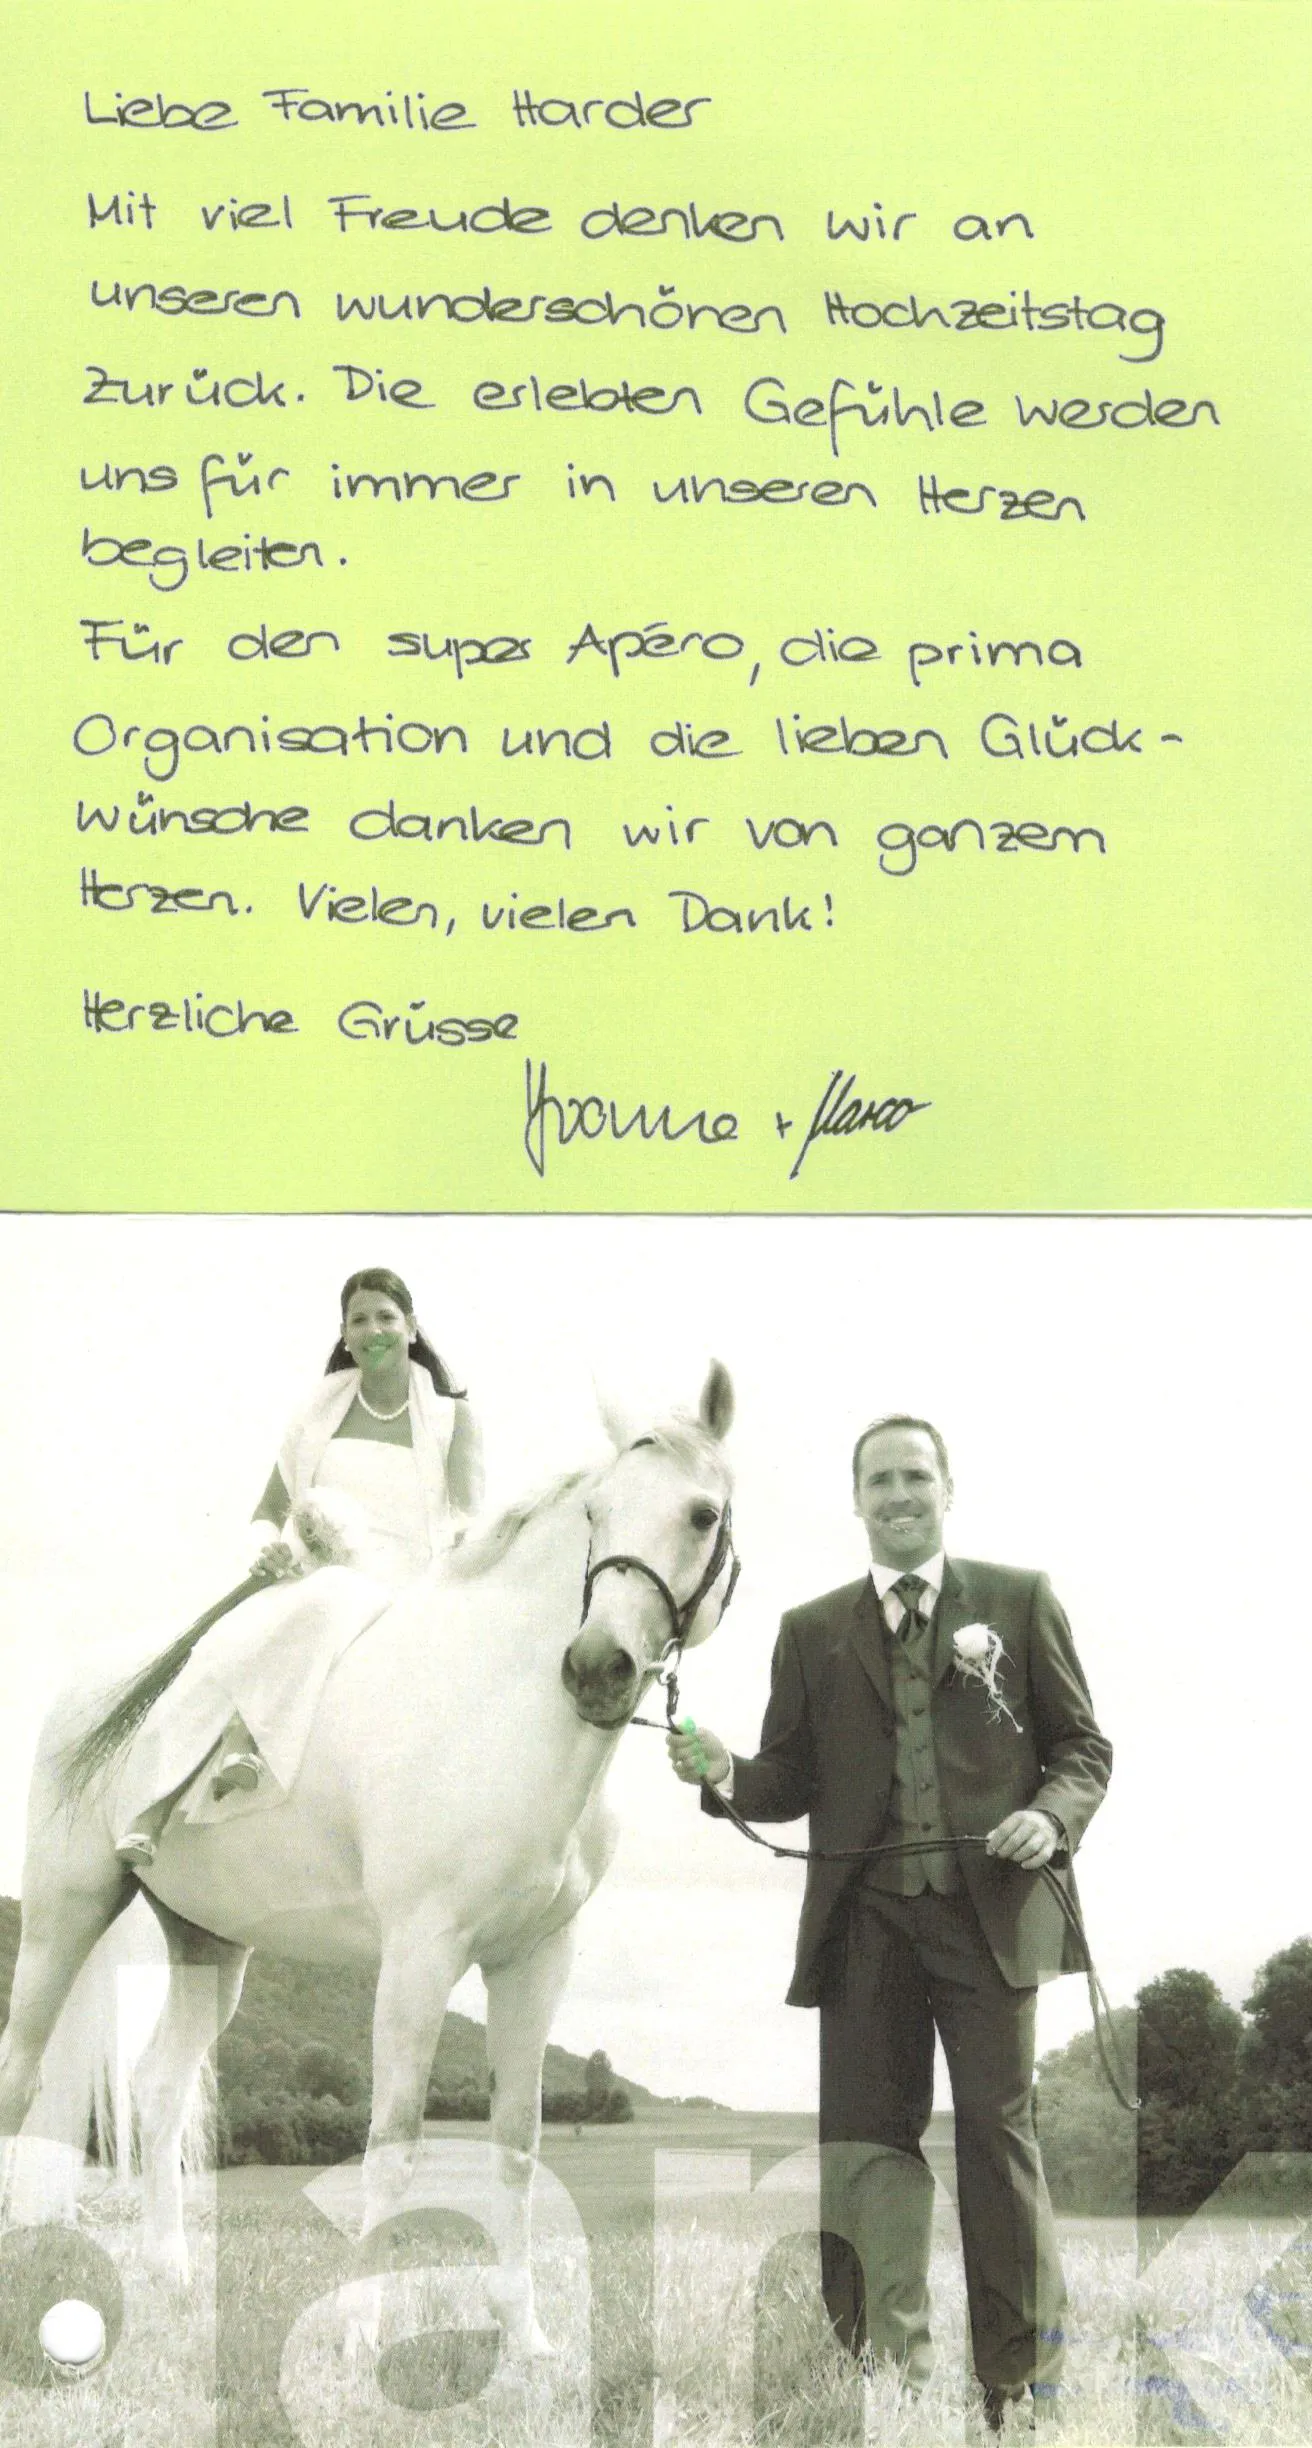 Liebe Familie Harder
Mit viel Freude denken wir an
unseren wunderschönen Hochzeitstag
zurück. Die erlebten Gefühle werden
uns für immer in unseren Herzen
begleiten.
Für den super Apéro, die prima
Organisation und die lieben Glück-
wünsche danken wir von ganzem
Herzen. Vielen, vielen Dank!
Herzliche Grüsse
Yvonne + Marco
dank